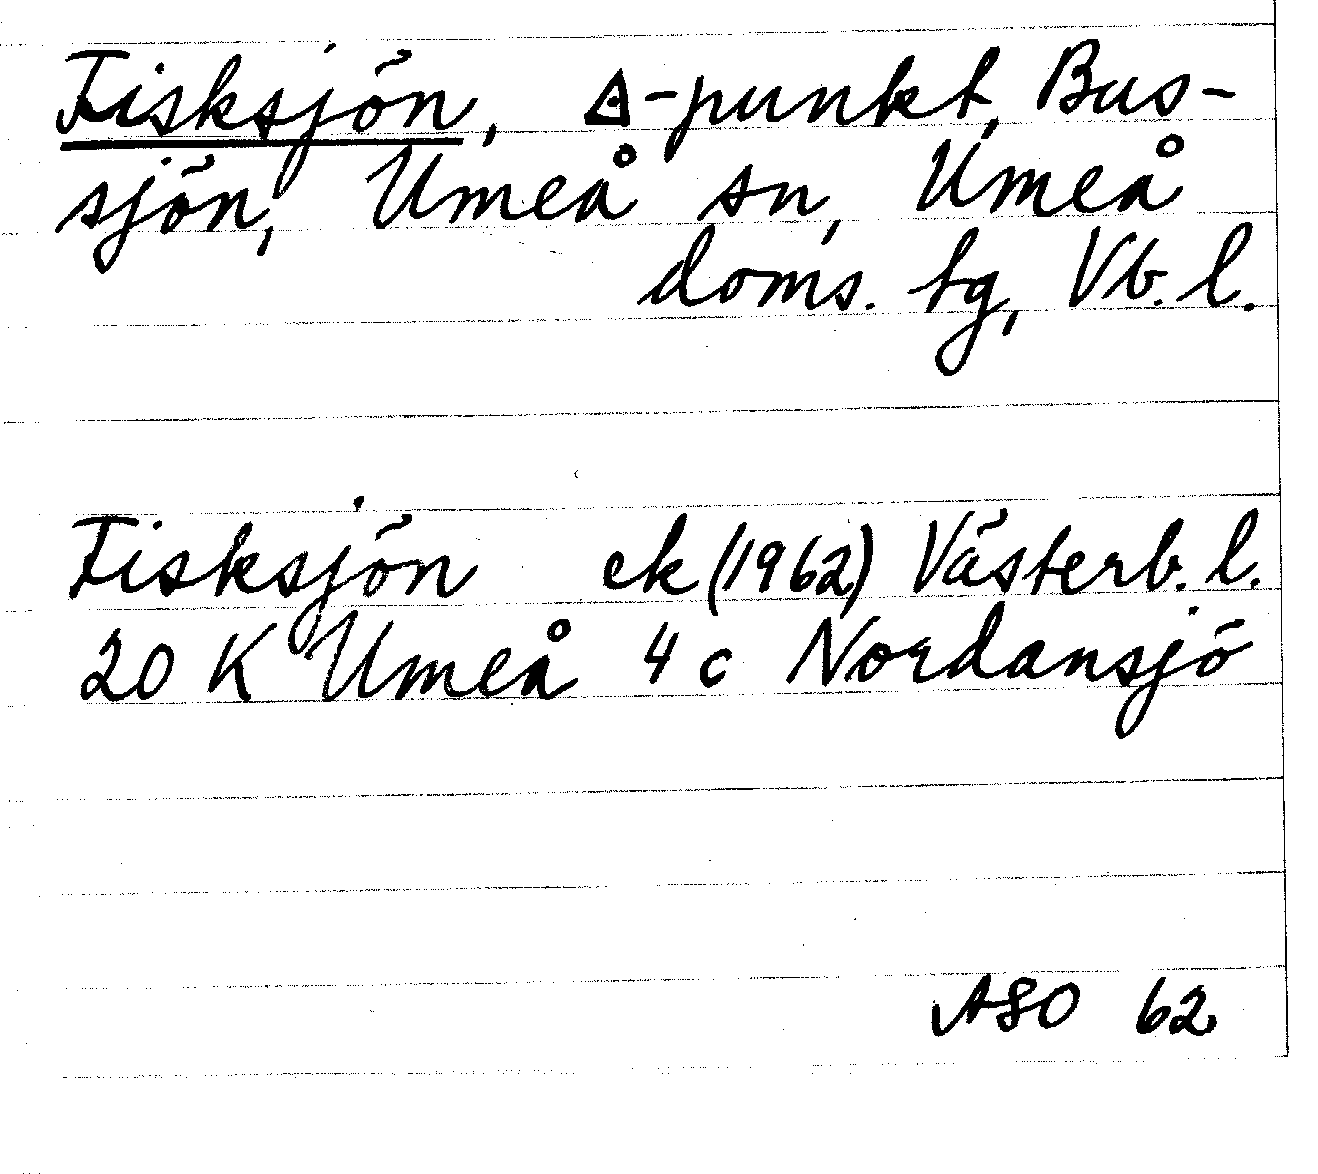 Fisksjön, △-punkt, Bus-
sjön, Umeå sn, Umeå
doms. tg, Vb. l.
Fisksjön ek (1962) Västerb. l.
20 K Umeå 4 c Nordansjö
ASO 62